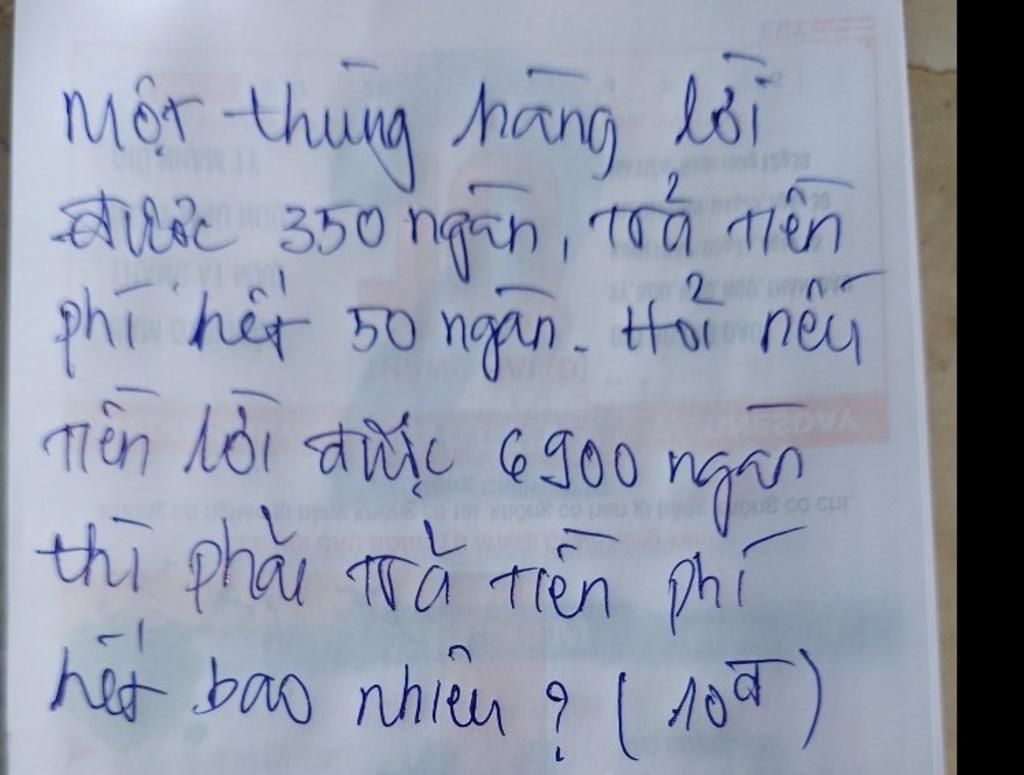 Một thùng hàng lời
được 350 ngàn, trả tiền
phí hết 50 ngàn. Hỏi nếu
tiền lời được 6900 ngàn
thì phải trả tiền phí
hết bao nhiêu? (10đ)